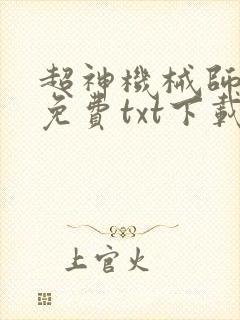 超神機械師
免費txt下載
上官火